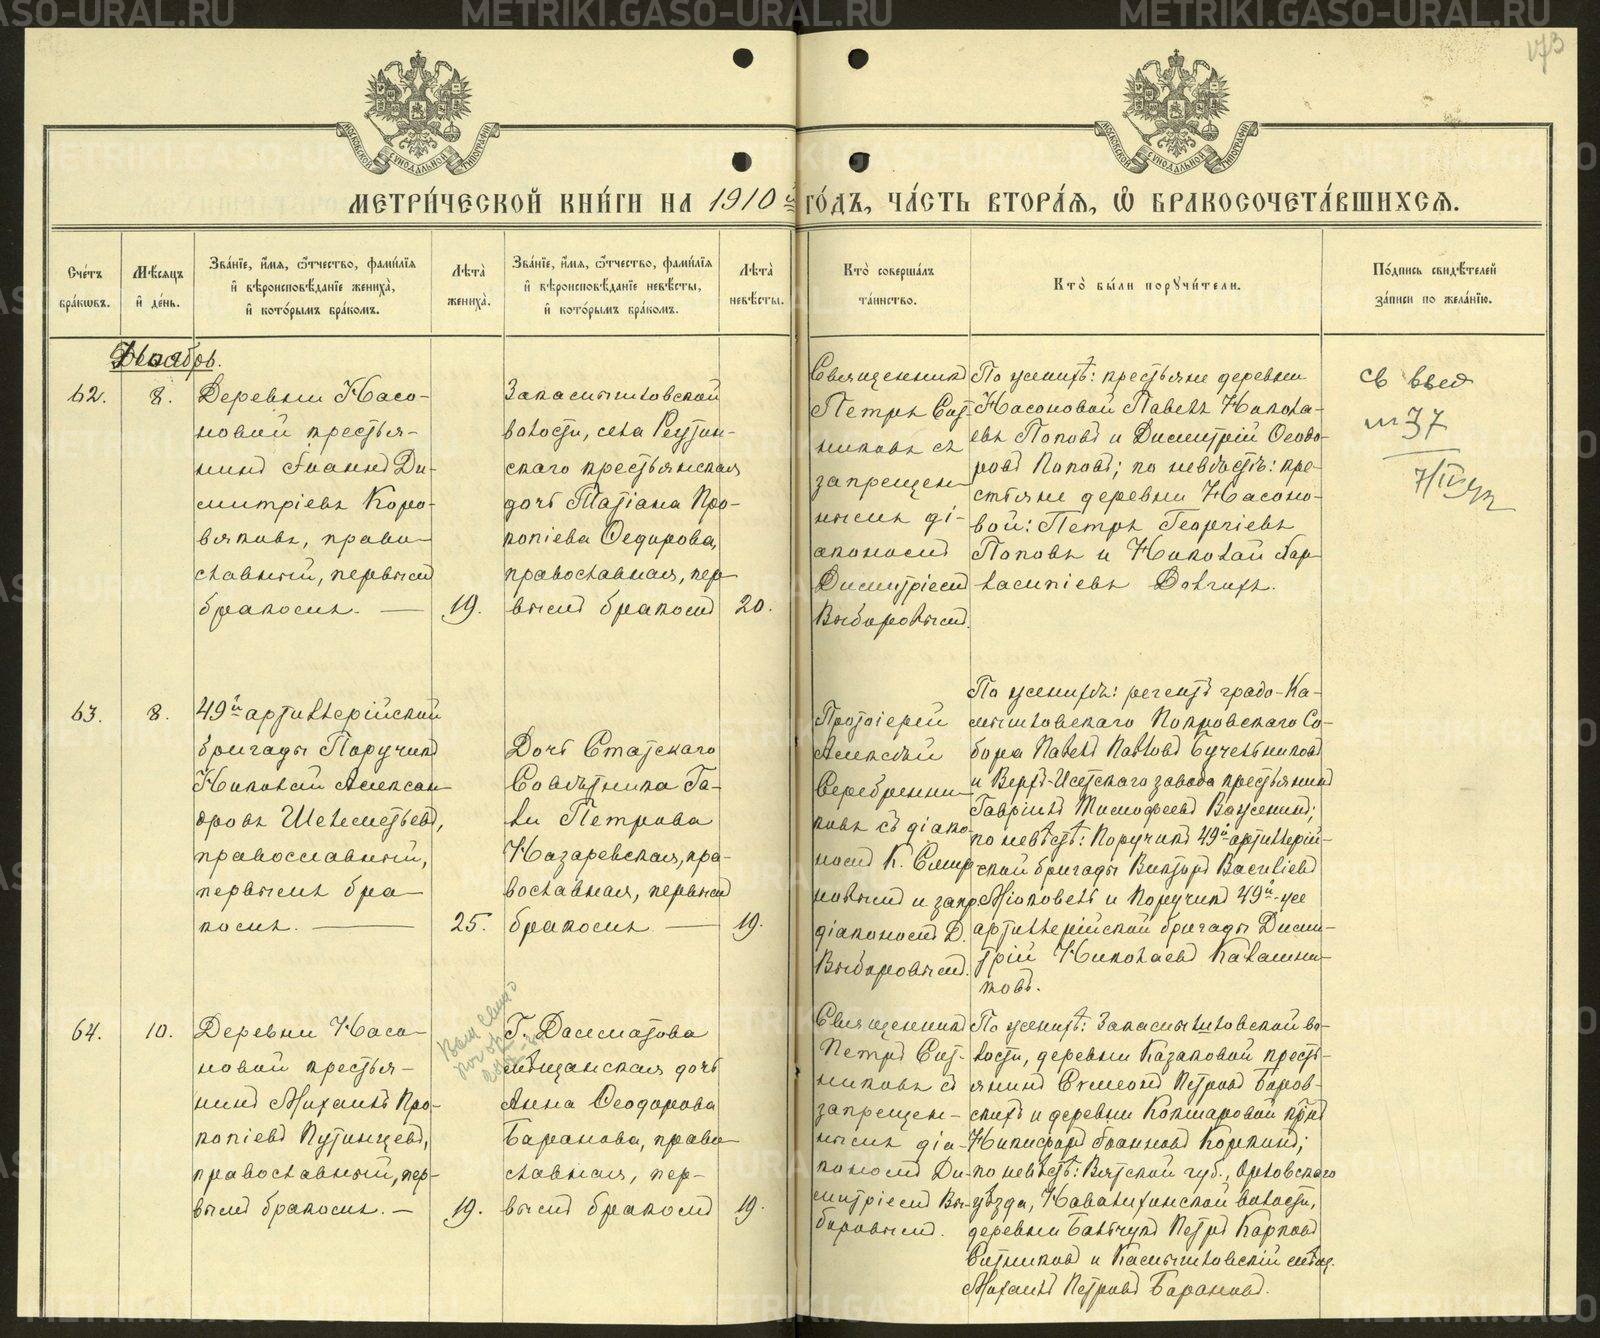 METRIKI.GASO-URAL.RU
173
МОСКОВСКОЙ СѴНОДАЛЬНОЙ ТИПОГРАФІИ
МОСКОВСКОЙ СѴНОДАЛЬНОЙ ТИПОГРАФІИ
МЕТРИ́ЧЕСКОЙ КНИ́ГИ НА 1910й ГО́ДЪ, ЧА́СТЬ ВТОРА́Ѧ, Ѽ БРАКОСОЧЕТА́ВШИХСѦ.
Сче́тъ
бра́кѡвъ.
Мѣ́сѧцъ
и҆ де́нь.
Зва́нїе, и҆́мѧ, ѻ҆́тчество, фами́лїѧ
и҆ вѣроисповѣ́данїе жениха̀,
и҆ кото́рымъ бра́комъ.
Лѣта̀
жениха̀.
Зва́нїе, и҆́мѧ, ѻ҆́тчество, фами́лїѧ
и҆ вѣроисповѣ́данїе невѣ́сты,
и҆ кото́рымъ бра́комъ.
Лѣта̀
невѣ́сты.
Кто̀ соверша́лъ
та́инство.
Кто̀ бы́ли порꙋчи́тели.
По́дпись свидѣ́телей
за́писи по жела́нїю.
Ноябрь.
62.
8.
Деревни Насо-
новой крестья-
нинъ Іоаннъ Ди-
митріевъ Коро-
вяковъ, право-
славный, первымъ
бракомъ. —
19.
Закамышловской
волости, села Реутин-
скаго крестьянская
дочь Татіана Про-
копіева Ѳедорова,
православная, пер-
вымъ бракомъ
20.
Священникъ
Петръ Сит-
никовъ съ
запрещен-
нымъ ді-
акономъ
Димитріемъ
Выборовымъ.
По женихѣ: крестьяне деревни
Насоновой Павелъ Никола-
евъ Поповъ и Димитрій Ѳеодо-
ровъ Поповъ; по невѣстѣ: кре-
стьяне деревни Насоно-
вой: Петръ Георгіевъ
Поповъ и Николай Вар-
ласипіевъ Довгихъ.
37
63.
8.
49й артиллерійской
бригады Поручикъ
Николай Алексан-
дровъ Шелеметьевъ,
православный,
первымъ бра-
комъ. —
25.
Дочь Статскаго
Совѣтника Га-
ли Петрова
Назаревская, пра-
вославная, первымъ
бракомъ —
19.
Протоіерей
Алексѣй
Серебренни-
ковъ съ діако-
номъ К. Смир-
новымъ и запр.
діакономъ Д.
Выборовымъ.
По женихѣ: регентъ градо-Ка-
мышловскаго Покровскаго Со-
бора Павелъ Павловъ Бучельниковъ
и Верхъ-Исетскаго завода крестьянинъ
Гавріилъ Тимоѳеевъ Ваусенинъ;
по невѣстѣ: Поручикъ 49й артиллерій-
ской бригады Викторъ Василіевъ
Міоковичъ и Поручикъ 49й-же
артиллерійской бригады Дими-
трій Николаевъ Калашни-
ковъ.
64.
10.
Деревни Насо-
новой крестья-
нинъ Михаилъ Про-
копіевъ Путинцевъ,
православный, пер-
вымъ бракомъ. —
19.
Г. Далматова
мѣщанская дочь
Анна Ѳеодорова
Баранова, право-
славная, пер-
вымъ бракомъ
19.
Священникъ
Петръ Сит-
никовъ съ
запрещен-
нымъ діа-
кономъ Ди-
митріемъ Вы-
боровымъ.
По женихѣ: Закамышловской во-
лости, деревни Казаковой кресть-
янинъ Симеонъ Петровъ Боров-
скихъ и деревни Кокшаровой кр-нъ
Никифоръ Іоанновъ Коркинъ;
по невѣстѣ: Вятской губ., Орловскаго
уѣзда, волости,
деревни Петръ Карповъ
Ситниковъ и Камышловскій мѣщ.
Михаилъ Петровъ Барановъ.